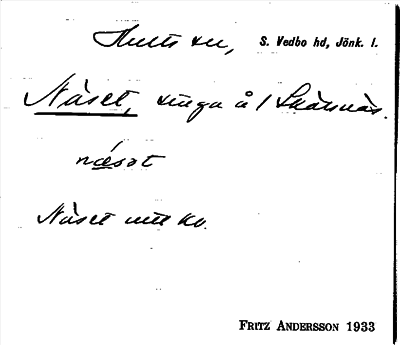 Hults sn, S. Vedbo hd, Jönk. l.
Näset, äng å 1 Skärsnäs.
næsət
Näset utt kv.
FRITZ ANDERSSON 1933